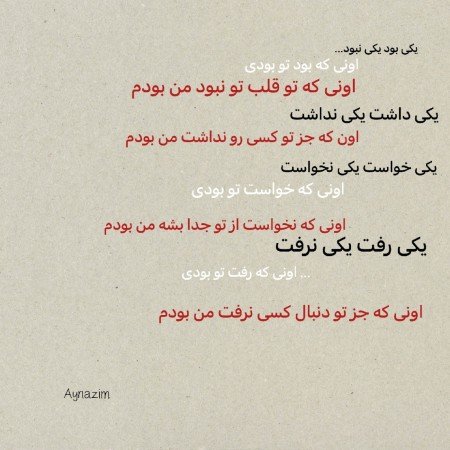 یکی بود یکی نبود...
اونی که بود تو بودی
اونی که تو قلب تو نبود من بودم
یکی داشت یکی نداشت
اون که جز تو کسی رو نداشت من بودم
یکی خواست یکی نخواست
اونی که خواست تو بودی
اونی که نخواست از تو جدا بشه من بودم
یکی رفت یکی نرفت
... اونی که رفت تو بودی
اونی که جز تو دنبال کسی نرفت من بودم
Aynazim